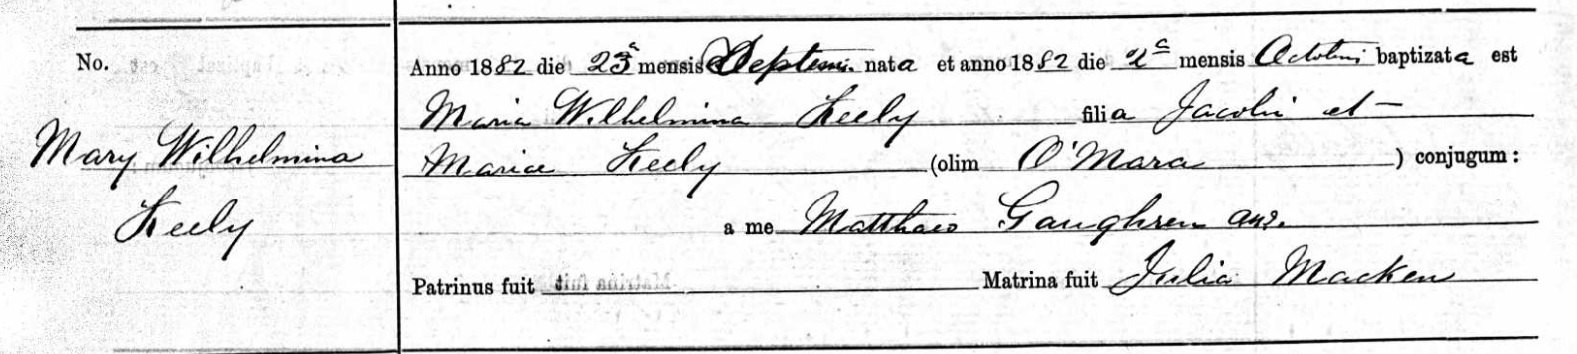 No.
Mary Wilhelmina
Keely
Anno 1882 die 23ᵃ mensis Septem. nata et anno 1882 die 2ᵃ mensis Octobris baptizata est
Maria Wilhelmina Keely filia Jacobi et
Mariae Keely (olim O'Mara) conjugum:
a me Matthaeo Gaughren
Patrinus fuit Matrina fuit Julia Macken